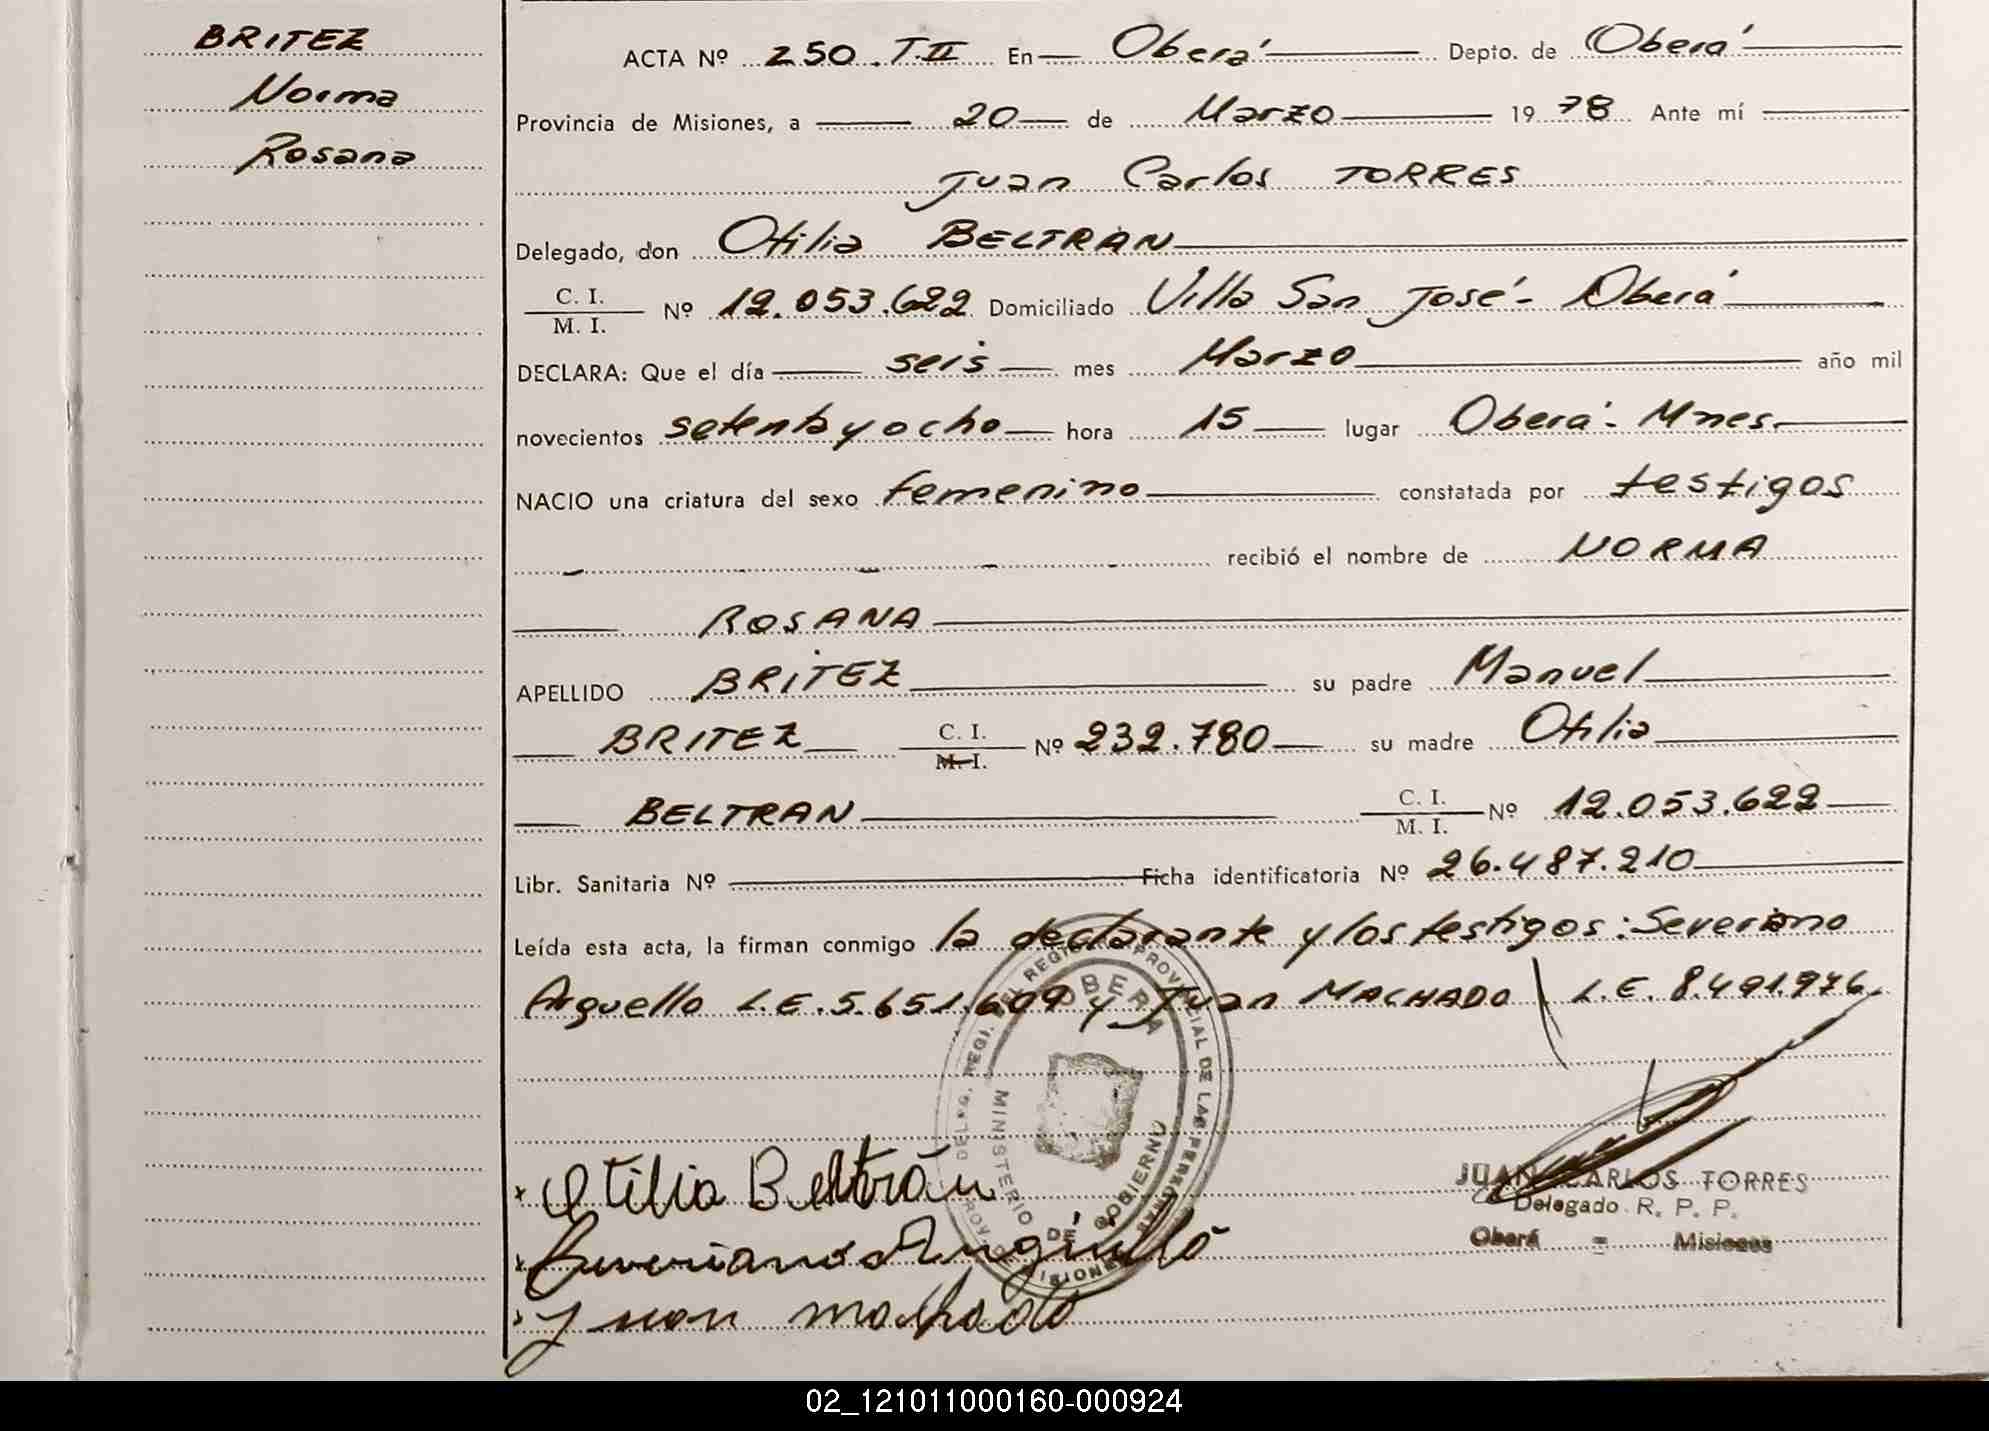 BRITEZ
Norma
Rosana
ACTA Nº 250. T.II En Oberá Depto. de Oberá
Provincia de Misiones, a 20 de Marzo 1978 Ante mí
Juan Carlos TORRES
Delegado, don Otilia BELTRAN
C. I.
M. I. Nº 12.053.622 Domiciliado Villa San José - Oberá
DECLARA: Que el día seis mes Marzo año mil
novecientos setenta y ocho hora 15 lugar Oberá - Mnes.
NACIO una criatura del sexo femenino constatada por testigos
recibió el nombre de NORMA
ROSANA
APELLIDO BRITEZ su padre Manuel
BRITEZ C. I. M. I. Nº 232.780 su madre Otilia
BELTRAN C. I. M. I. Nº 12.053.622
Libr. Sanitaria Nº Ficha identificatoria Nº 26.487.210
Leída esta acta, la firman conmigo la declarante y los testigos: Severiano
Arguello L.E. 5.651.609 y Juan MACHADO L.E. 8.491.976.
OBERA
MINISTERIO DE GOBIERNO
PROVINCIAL DE LAS PERSONAS
Otilia Beltrán
Severiano Arguello
Juan machado
JUAN CARLOS TORRES
Delegado R. P. P.
Oberá = Misiones
02_121011000160-000924